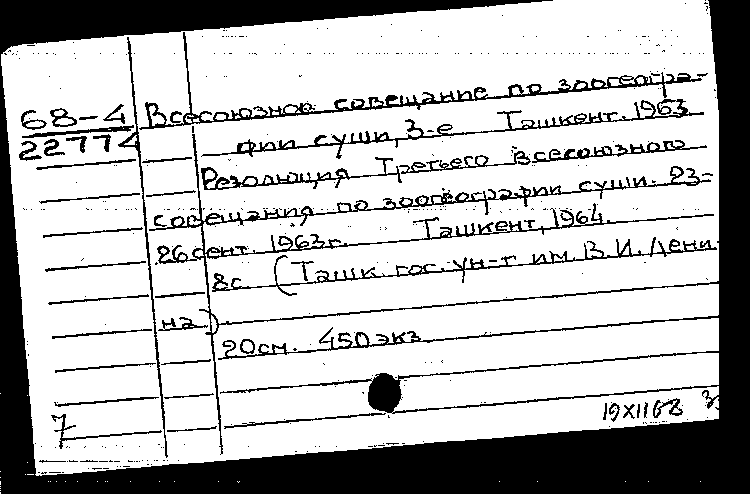 68-4 Всесоюзное совещание по зоогеогра-
22774 фии суши, 3-е Ташкент. 1963
Резолюция Третьего Всесоюзного
совещания по зоогеографии суши. 23-
26 сент. 1963г. Ташкент, 1964.
8с. (Ташк. гос. ун-т им. В.И. Лени
на).
20см. 450 экз
7
19 XII 68